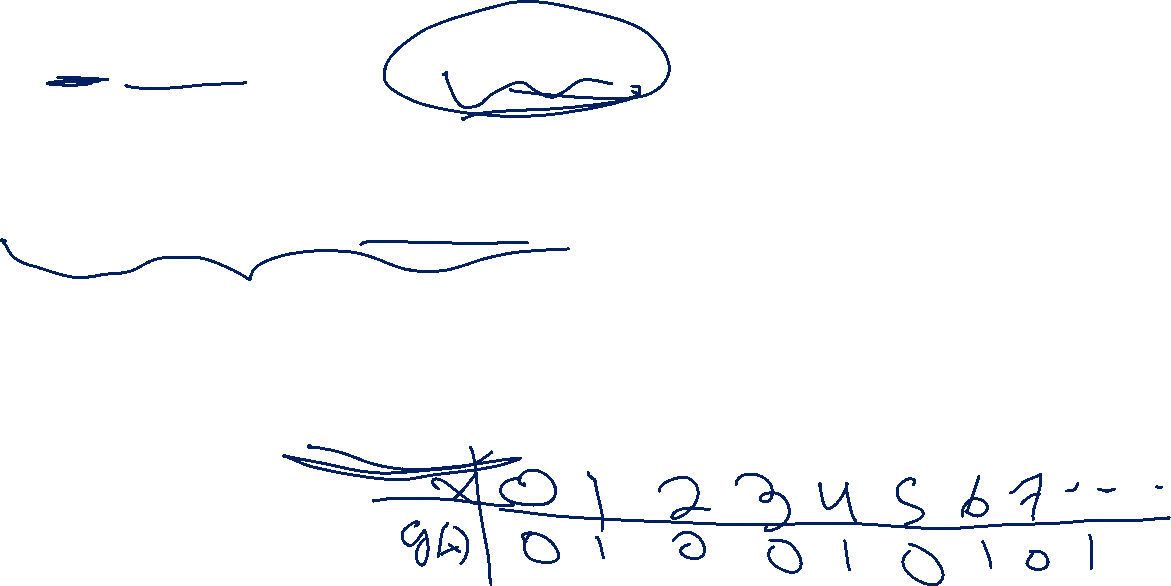 x | 0 1 2 3 4 5 6 7 ...
g(x) | 0 1 0 0 1 0 1 0 1